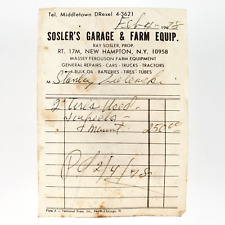 Tel. Middletown DRexel 4-3621
Feb 4 1978
SOSLER'S GARAGE & FARM EQUIP.
RAY SOSLER, PROP.
RT. 17M, NEW HAMPTON, N.Y. 10958
MASSEY FERGUSON FARM EQUIPMENT
GENERAL REPAIRS - CARS - TRUCKS - TRACTORS
BULK OIL BATTERIES - TIRES - TUBES
M Stanley
2 Tires Used
& Mount 25000
Pd 2/4/78